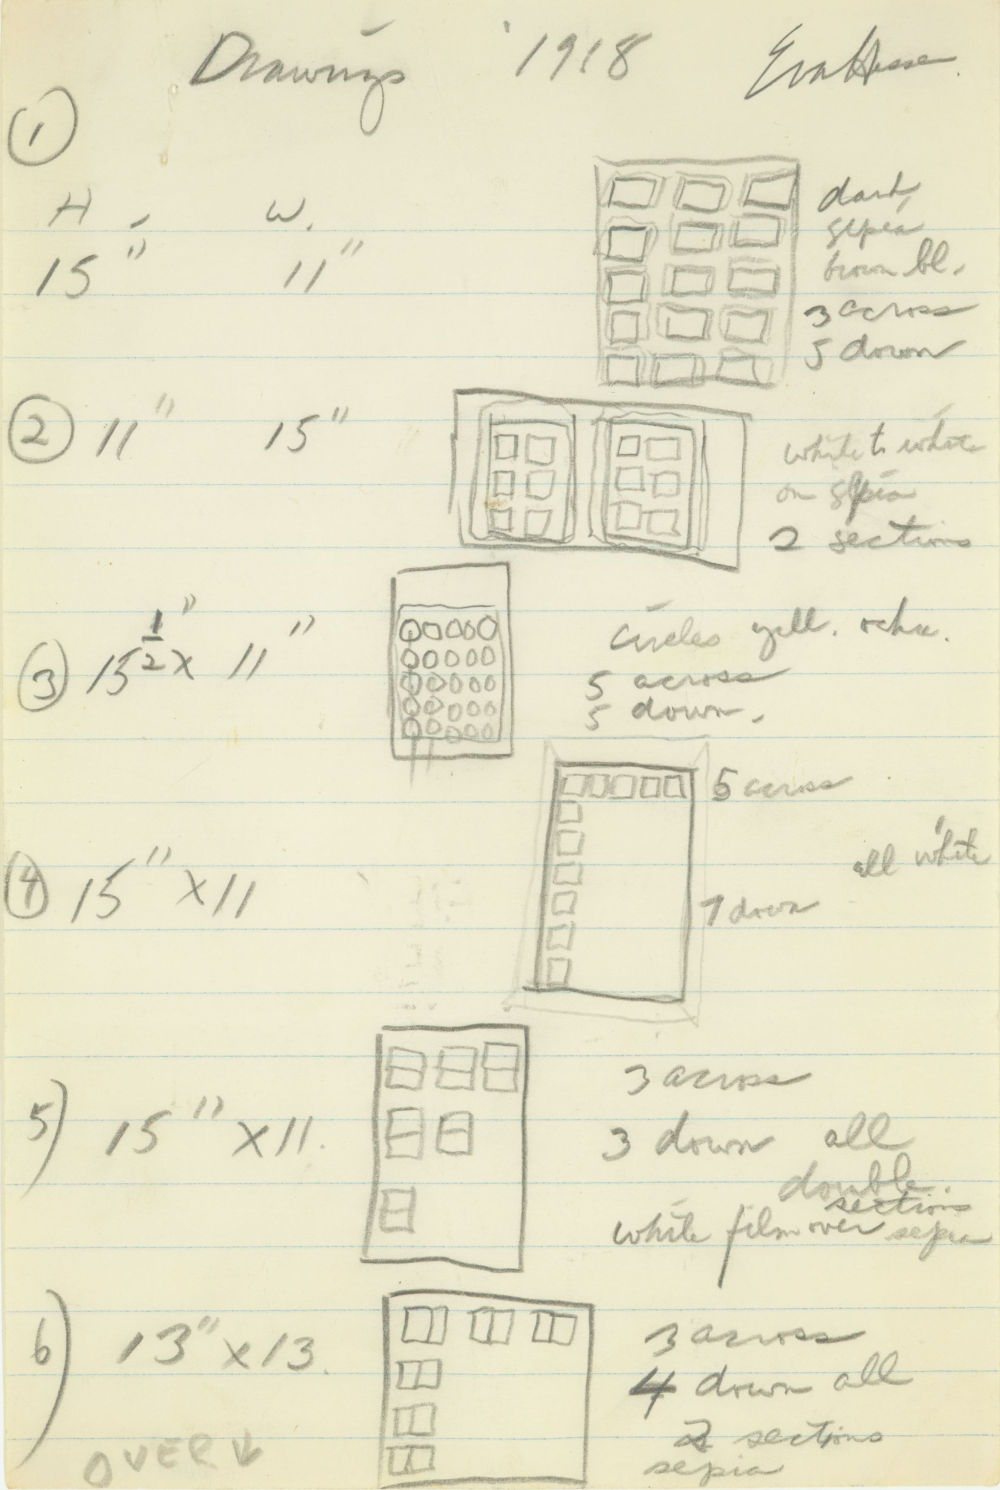 Drawings '1918 Eva Hesse
1
H W.
15" 11"
dark,
sepia
brown bl.
3 across
5 down
2 11" 15"
white to white
on sepia
2 sections
3 15 1/2" x 11"
circles yell. ochre.
5 across
5 down.
4 15" x 11
5 across
all white
7 down
5) 15" x 11.
3 across
3 down all
double.
sections
white film over sepia
6) 13" x 13.
3 across
4 down all
2 sections
sepia
OVER ↓